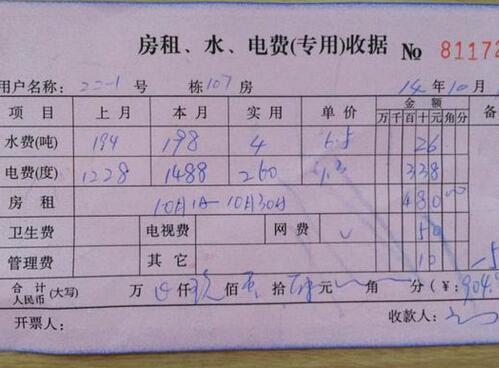 房租、水、电费(专用)收据 No 81172
用户名称: 22-1 号 栋107房 14年10月
项目 上月 本月 实用 单价 金额 备
万千百十元角分
水费(吨) 194 198 4 6.5 26
电费(度) 1228 1488 260 1.3 338
房租 10月1日-10月30日 480 00
卫生费 电视费 网费 50
管理费 其它 10
合计人民币(大写) 万 仟 玖佰 拾 元 角 分(¥: 904
开票人: 收款人: